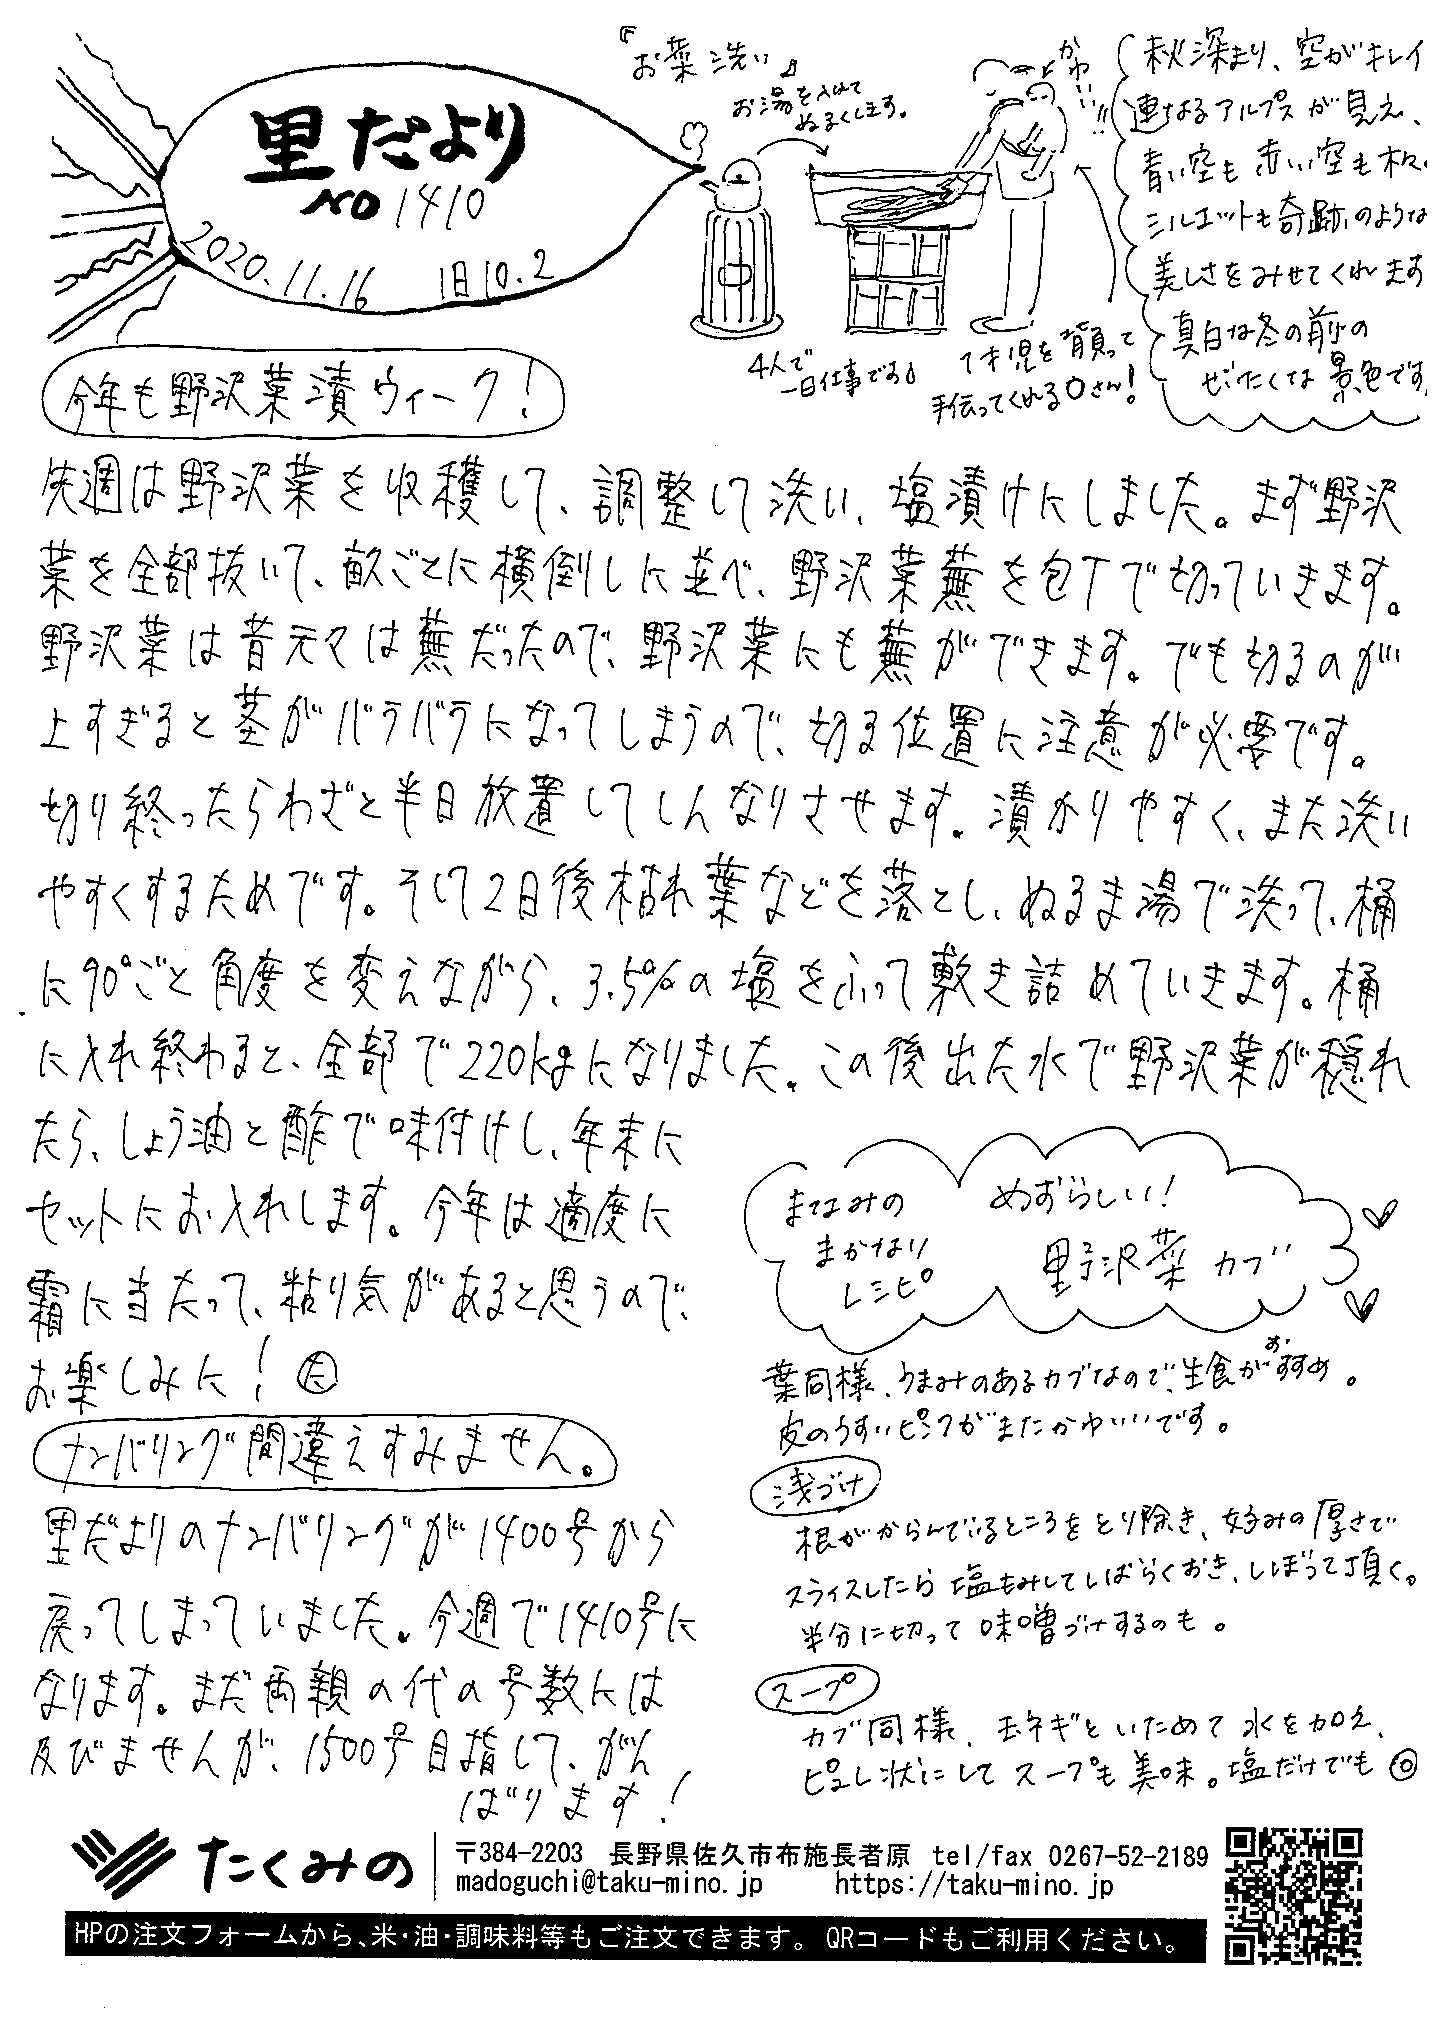 里だより
NO 1410
2020.11.16 旧10.2
『お菜洗い』
お湯を入れて
ぬるくします。
かわいい!!
4人で
一日仕事です。
1才児を背負って
手伝ってくれるOさん!
秋深まり、空がキレイ
連なるアルプスが見え、
青い空も赤い空も木々
シルエットも奇跡のような
美しさをみせてくれます
真白な冬の前の
ぜいたくな景色です。
今年も野沢菜漬ウィーク!
先週は野沢菜を収穫して、調整して洗い、塩漬けにしました。まず野沢
菜を全部抜いて、畝ごとに横倒しに並べ、野沢菜蕪を包丁で切っていきます。
野沢菜は昔元々は蕪だったので、野沢菜にも蕪ができます。でも切るのが
上すぎると茎がバラバラになってしまうので、切る位置に注意が必要です。
切り終ったらわざと半日放置してしんなりさせます。漬かりやすく、また洗い
やすくするためです。そして2日後枯れ葉などを落とし、ぬるま湯で洗って、桶
に90°ごと角度を変えながら、3.5%の塩をふって敷き詰めていきます。桶
に入れ終わると、全部で220kgになりました。この後出た水で野沢菜が隠れ
たら、しょう油と酢で味付けし、年末に
セットにお入れします。今年は適度に
霜に当たって、粘り気があると思うので、
お楽しみに! た
ナンバリング間違えすみません。
里だよりのナンバリングが1400号から
戻ってしまっていました。今週で1410号に
なります。まだ両親の代の号数には
及びませんが、1500号目指して、がん
ばります!
まなみの
まかない
レシピ
めずらしい!
野沢菜カブ
葉同様、うまみのあるカブなので、生食がおすすめ。
皮のうすいピンクがまたかわいいです。
浅づけ
根がからんでいるところをとり除き、好みの厚さで
スライスしたら塩もみしてしばらくおき、しぼって頂く。
半分に切って味噌づけするのも。
スープ
カブ同様、玉ネギといためて水を加え、
ピュレ状にしてスープも美味。塩だけでも◎
たくみの
〒384-2203 長野県佐久市布施長者原 tel/fax 0267-52-2189
madoguchi@taku-mino.jp https://taku-mino.jp
HPの注文フォームから、米・油・調味料等もご注文できます。QRコードもご利用ください。